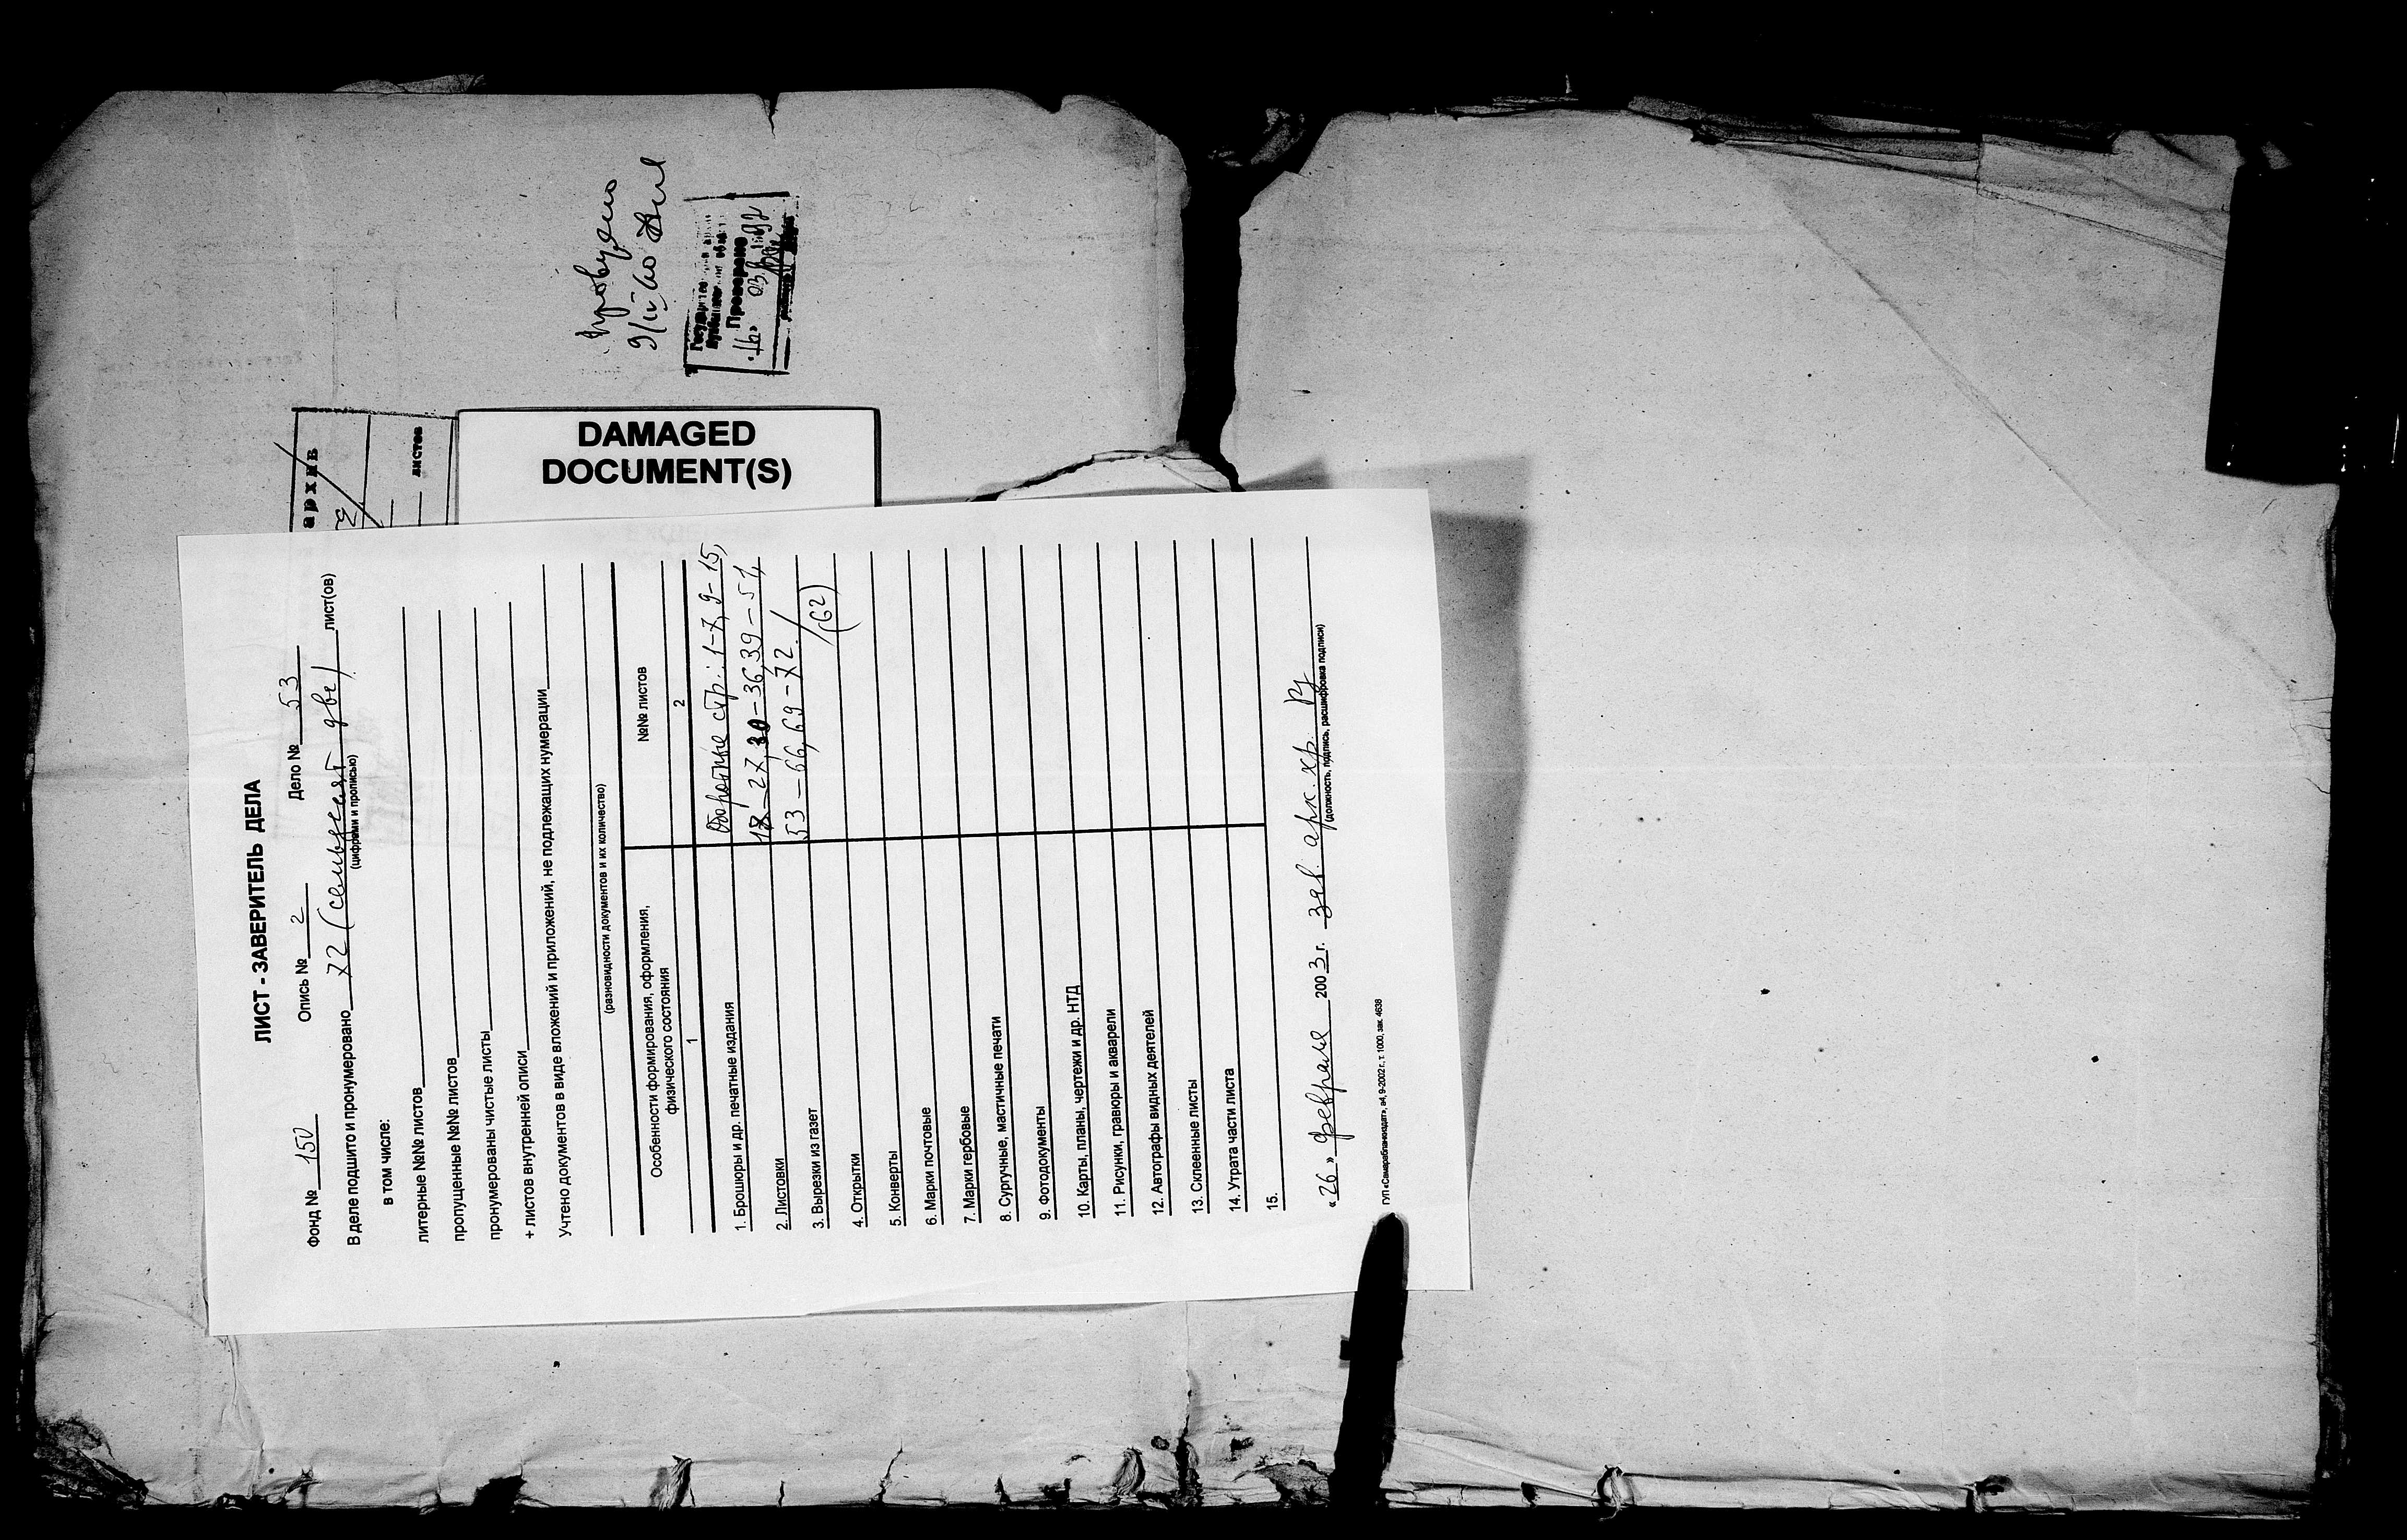 DAMAGED
DOCUMENT(S)
архив
листов
Проверено
ЛИСТ - ЗАВЕРИТЕЛЬ ДЕЛА
Фонд № 150 Опись № 2 Дело № 53
В деле подшито и пронумеровано 72 (семьдесят две) лист(ов)
(цифрами и прописью)
в том числе:
литерные №№ листов
пропущенные №№ листов
пронумерованы чистые листы
+ листов внутренней описи
Учтено документов в виде вложений и приложений, не подлежащих нумерации
(разновидности документов и их количество)
Особенности формирования, оформления,
физического состояния
№№ листов
1
2
Оборотные стр.: 1-7, 9-15,
18-27, 30-36, 39-51,
53-66, 69-72.
(62)
1. Брошюры и др. печатные издания
2. Листовки
3. Вырезки из газет
4. Открытки
5. Конверты
6. Марки почтовые
7. Марки гербовые
8. Сургучные, мастичные печати
9. Фотодокументы
10. Карты, планы, чертежи и др. НТД
11. Рисунки, гравюры и акварели
12. Автографы видных деятелей
13. Склеенные листы
14. Утрата части листа
15.
«26» февраля 2003 г. зав. арх. хр.
(должность, подпись, расшифровка подписи)
ГУП «Самараблаиздат», а4, 9-2002 г., т. 1000, зак. 4638